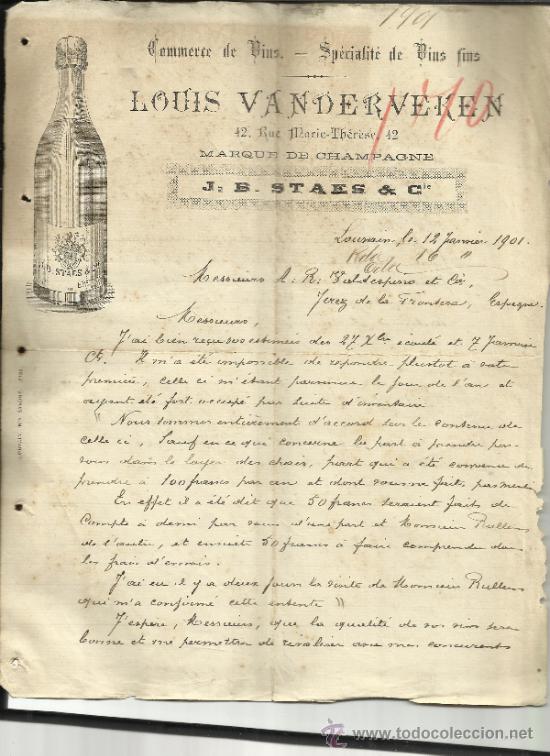 1901
Commerce de Vins. — Spécialité de Vins fins
LOUIS VANDERVEKEN
1470
42, Rue Marie-Thérèse, 42
MARQUE DE CHAMPAGNE
J. B. STAES & Cie
J.B. STAES & Cie
Louvain, le 12 Janvier 1901.
16 "
Messieurs A. R. Valdespino et Cie,
Jerez de la Frontera, Espagne.
Messieurs,
J'ai bien reçu vos estimées des 27 Xbre écoulé et 7 Janvier
Ct. Il m'a été impossible de répondre plustôt à votre
première, celle ci m'étant parvenue le jour de l'an et
ayant été fort occupé par suite d'inventaire
"Nous sommes entièrement d'accord sur le contenu de
celle ci, sauf en ce qui concerne la part à prendre par
vous dans le loyer des chais, part qui a été convenue de
prendre à 100 francs par an et dont vous ne faites pas mention
En effet il a été dit que 50 francs seraient faits de
Compte à demi par vous d'une part et Monsieur Rullens
de l'autre, et ensuite 50 francs à faire comprendre dans
les frais d'envois.
J'ai eu il y a deux jours la visite de Monsieur Rullens
qui m'a confirmé cette entente"
J'espère, Messieurs, que la qualité de vos vins sera
bonne et me permettra de rivaliser avec mes concurrents
www.todocoleccion.net